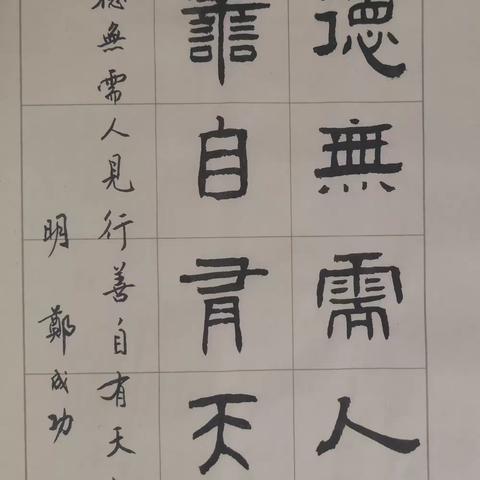 德無需人
譱自有天
德無需人見行善自有天
明 鄭成功